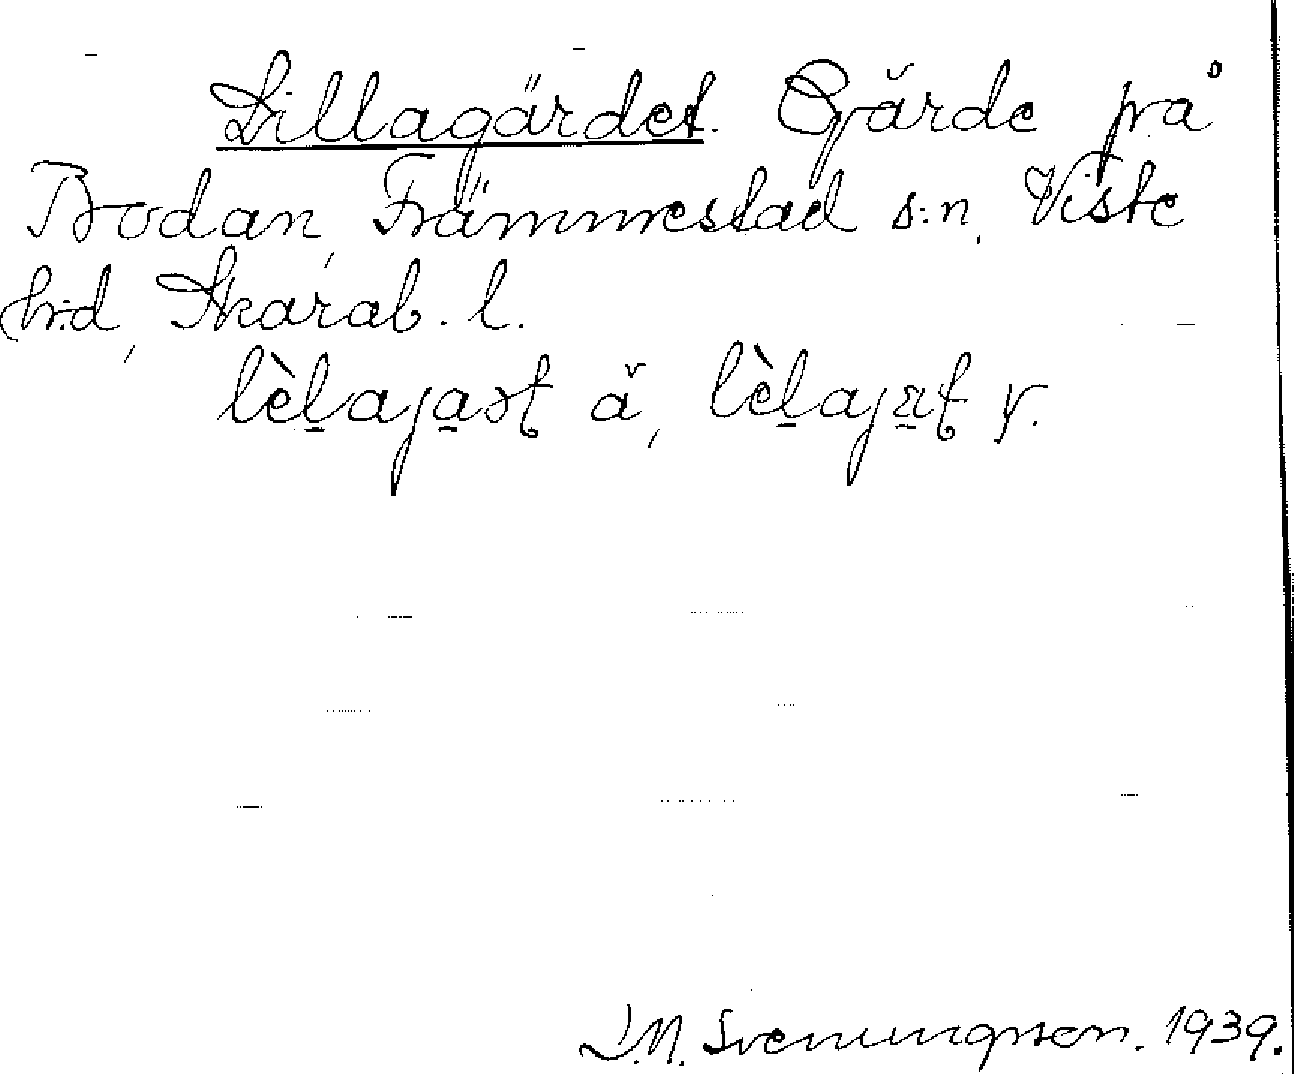 Lillagärdet. Gärde på
Bodan, Främmestad s:n, Viste
h:d, Skarab. l.
lèl̠aja̠ət ä, lèl̠ajæ̠t y.
J.M. Svenungsson. 1939.